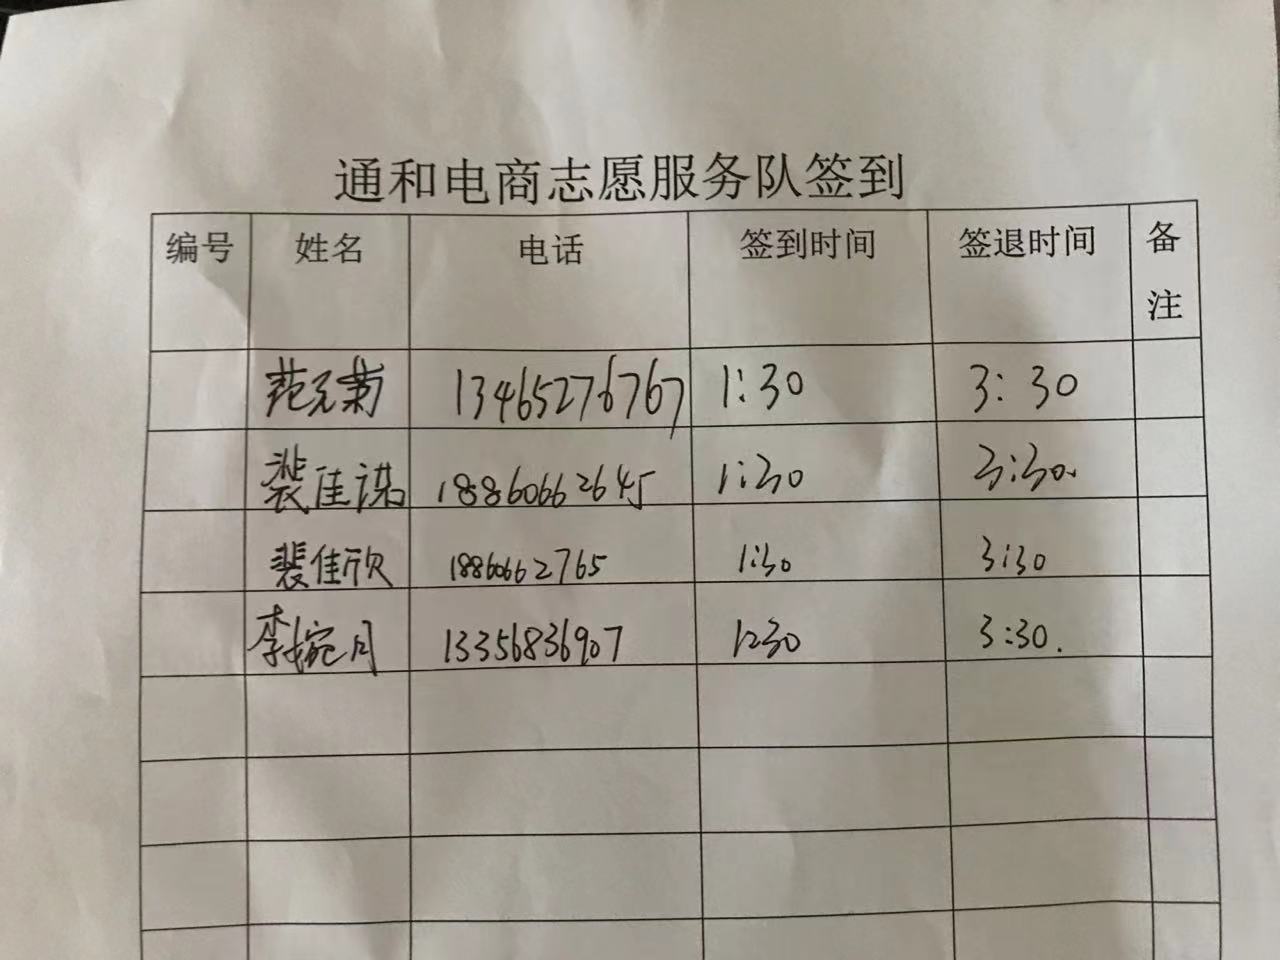 通和电商志愿服务队签到
编号 姓名 电话 签到时间 签退时间 备注
范元菊 13465276767 1:30 3:30
裴佳琪 18860662645 1:30 3:30.
裴佳欣 18860662765 1:30 3:30
李婉月 13356836907 1:30 3:30.